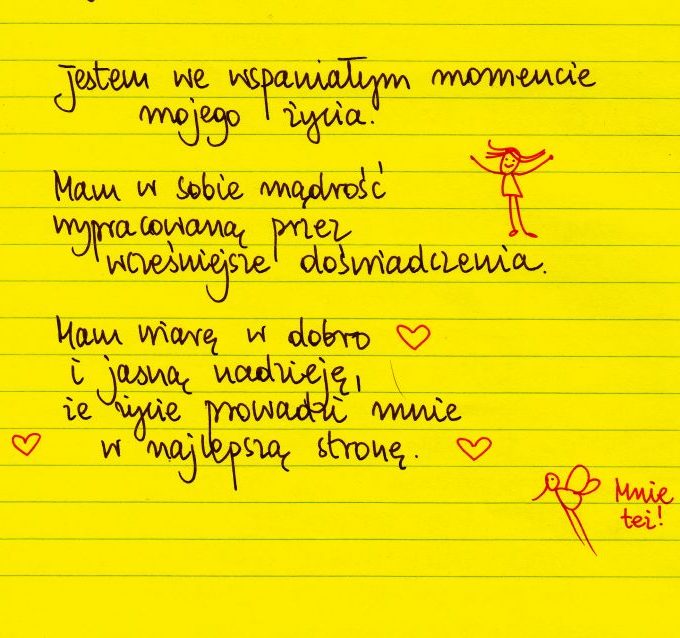 jestem we wspaniałym momencie
mojego życia.
Mam w sobie mądrość
wypracowaną przez
wcześniejsze doświadczenia.
Mam wiarę w dobro
i jasną nadzieję,
że życie prowadzi mnie
w najlepszą stronę.
Mnie
też!